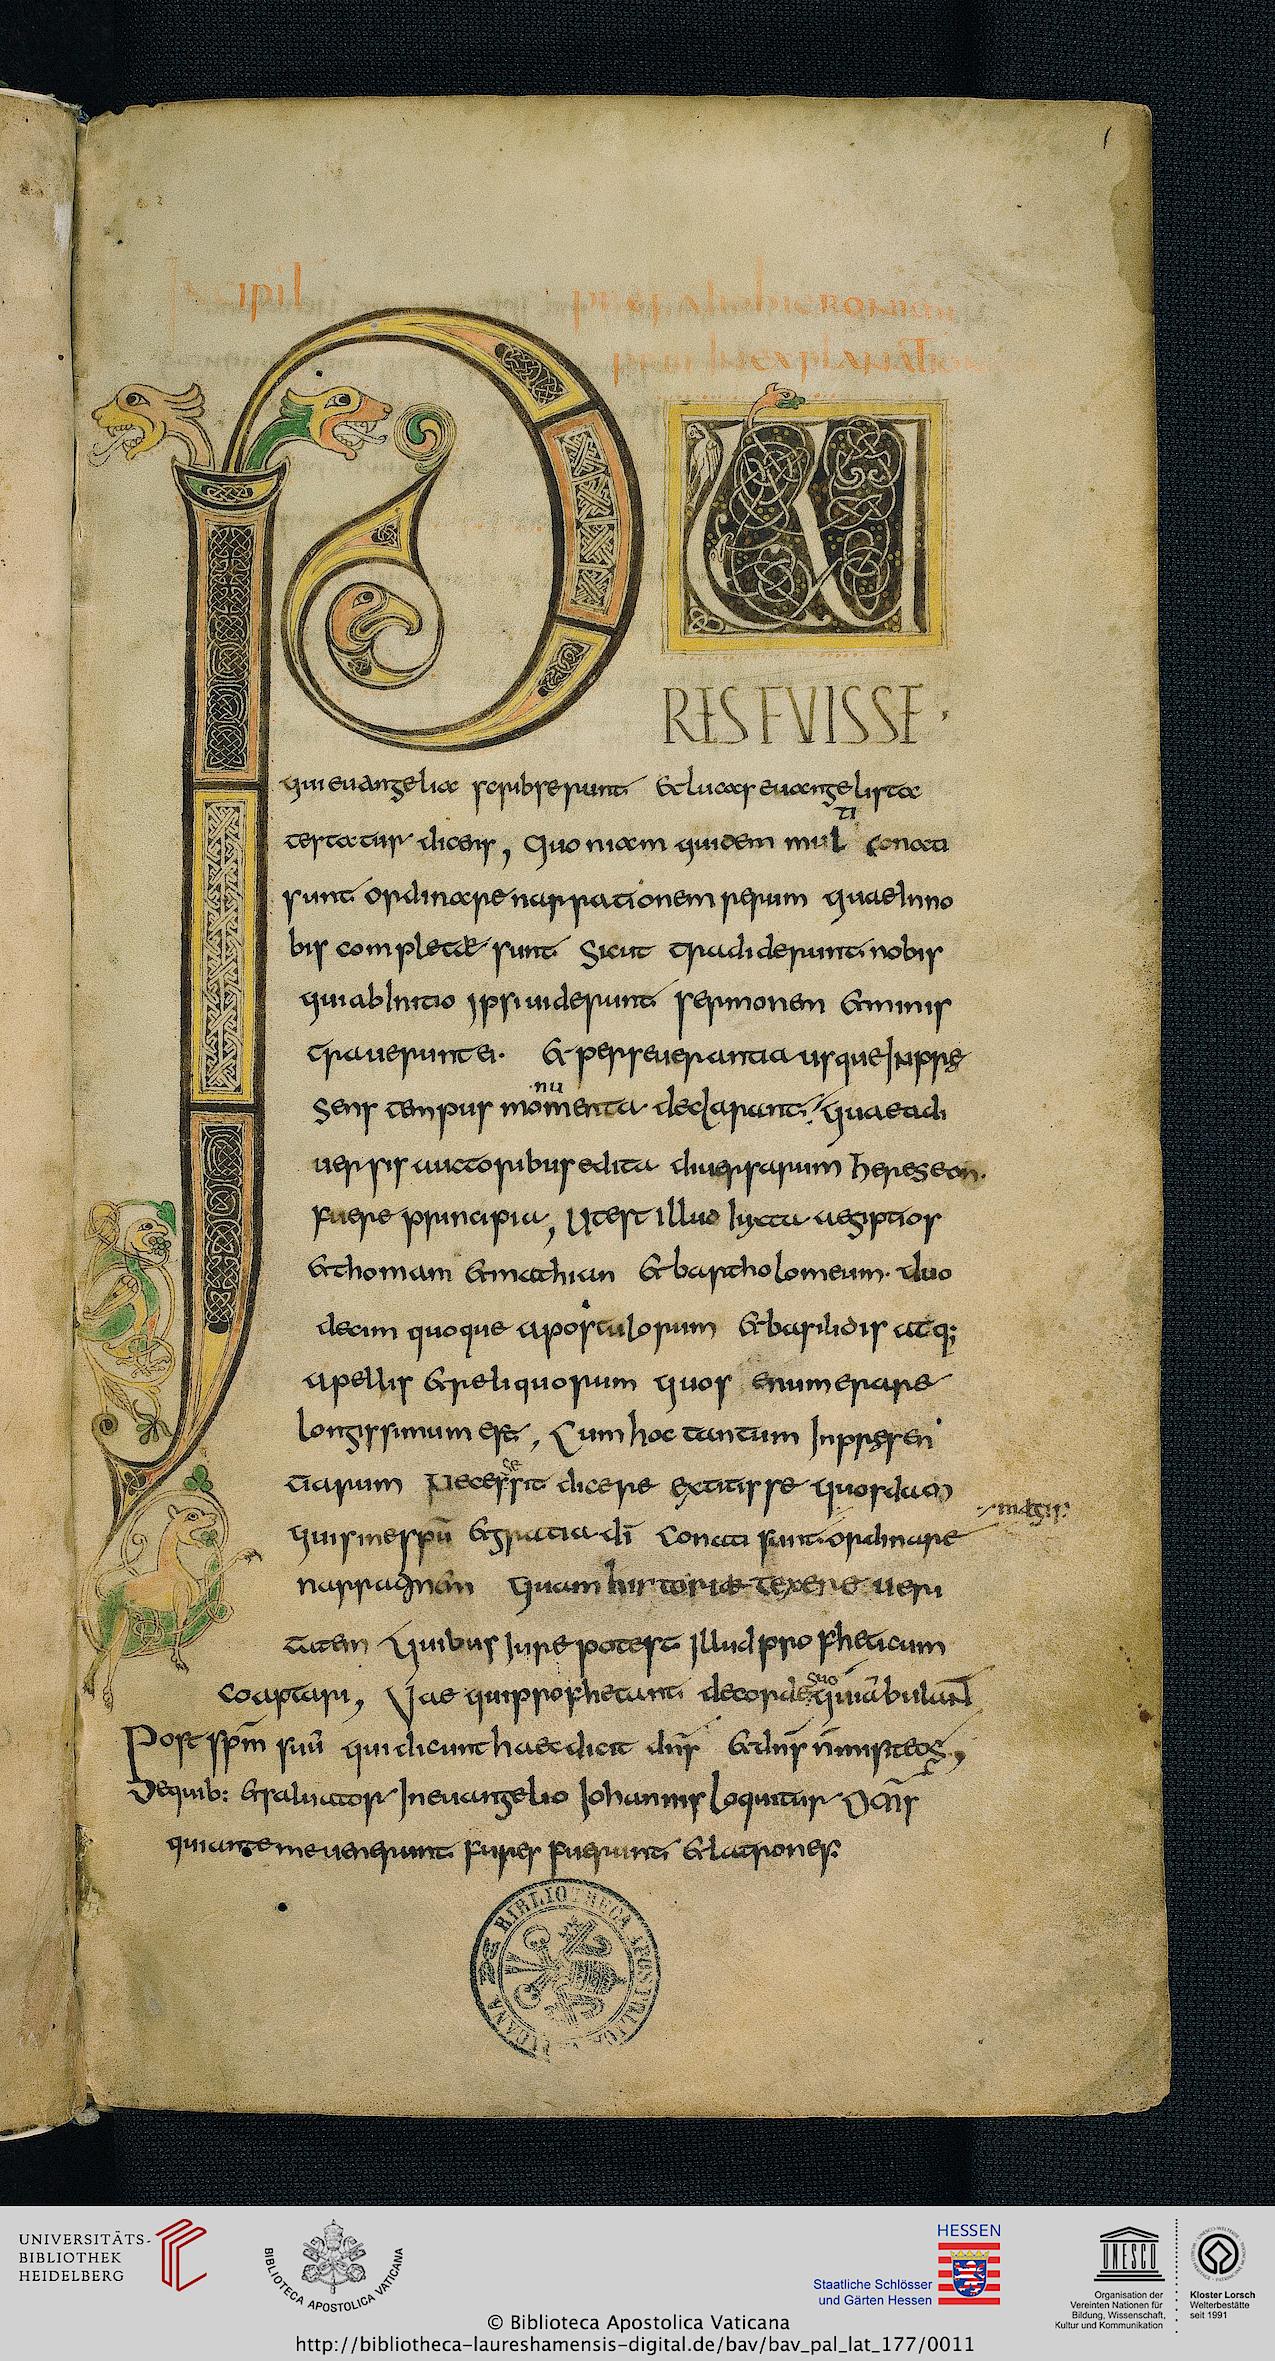 Incipit
PLURES FUISSE·
qui euangelia scribserunt & lucas euangelista
testatur dicens, Quoniam quidem multi conati
sunt ordinare narrationem rerum quae In no
bis completae sunt Sicut tradiderunt nobis
qui ab Initio ipsi uiderunt sermonem & minis
trauerunt ei· & perseuerantia usque In pre
sens tempus monumenta declarant, quae a di
uersis auctoribus edita diuersarum hereseon·
fuere principia, Ut est illud Iuxta aegiptios
& thomam & mathian & bartholomeum· duo
decim quoque apostulorum & basilidis atq;
apellis & reliquorum quos enumerare
longissimum est, Cum hoc tantum In presen
tiarum Necesse sit dicere extitisse quosdam
qui sine spu & gratia di conati sunt ordinare
magis
narragnōn quam historiae texere ueri
tatem Quibus Iure potest Illud profheticum
coaptari, Uae qui profhetant de corde suo qui ambulant
Post spm suū qui dicunt haec dicit dns & dns n misit eos,
De quib: & saluator In euangelio Iohannis loquitur Oms
qui ante me uenerunt fures fuerunt & latrones:
BIBLIOTHECA APOSTOLICA VATICANA
UNIVERSITÄTS-
BIBLIOTHEK
HEIDELBERG
BIBLIOTHECA APOSTOLICA VATICANA
HESSEN
Staatliche Schlösser
und Gärten Hessen
UNESCO
Organisation der
Vereinten Nationen für
Bildung, Wissenschaft,
Kultur und Kommunikation
Kloster Lorsch
Welterbestätte
seit 1991
© Biblioteca Apostolica Vaticana
http://bibliotheca-laureshamensis-digital.de/bav/bav_pal_lat_177/0011